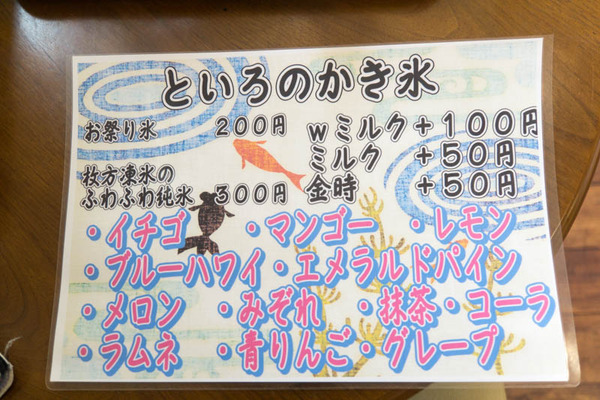 といろのかき氷
お祭り氷 200円 wミルク+100円
ミルク +50円
枚方凍氷の
ふわふわ純氷 300円 金時 +50円
・イチゴ ・マンゴー ・レモン
・ブルーハワイ・エメラルドパイン
・メロン ・みぞれ ・抹茶・コーラ
・ラムネ ・青りんご・グレープ